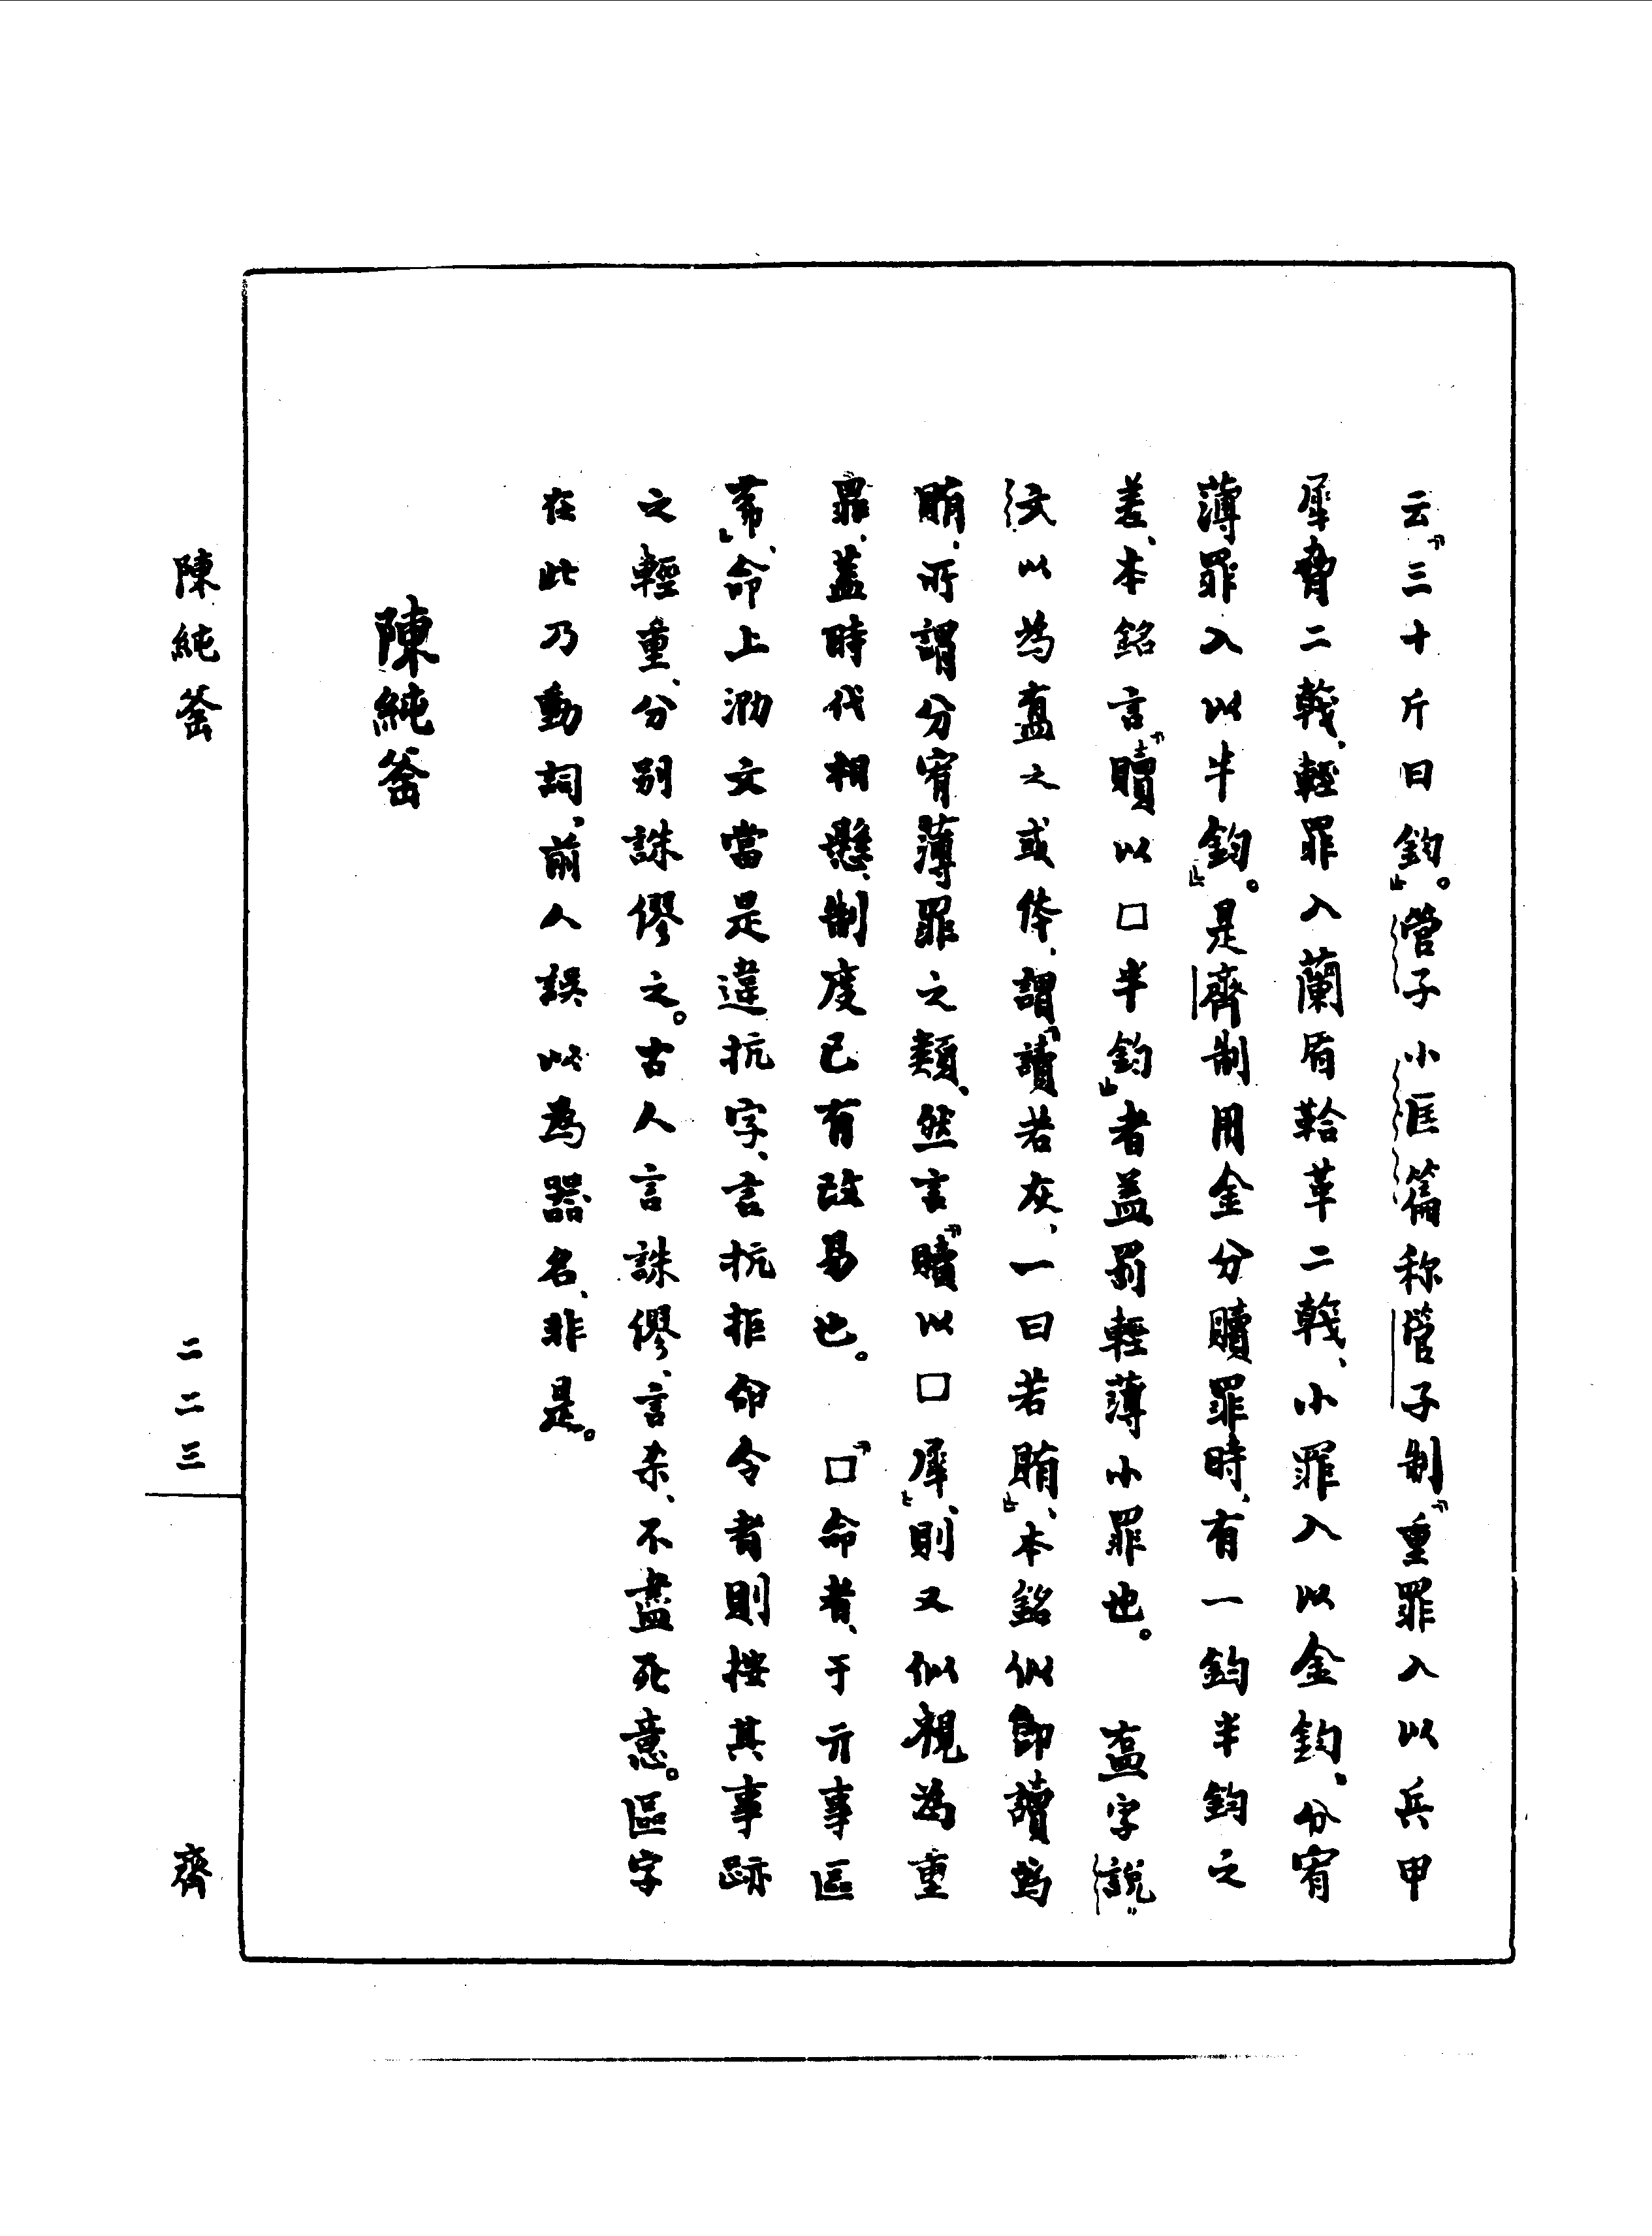 云「三十斤曰鈞」。管子小匡篇称管子制「重罪入以兵甲
犀脅二戟、輕罪入蘭盾鞈革二戟、小罪入以金鈞、分宥
薄罪入以半鈞」。是齊制用金分贖罪時、有一鈞半鈞之
差、本銘言「贖以□半鈞」者蓋罰輕薄小罪也。　盍字說
文以為盍之或体、謂「讀若灰、一曰若賄」、本銘似卽讀為
賄、所謂分宥薄罪之類、然言「贖以□犀」、則又似視為重
罪、蓋時代相懸、制度已有改易也。　「□命者、于丌事區
夫」、命上泐文當是違抗字、言抗拒命令者則按其事跡
之輕重、分別誅僇之。古人言誅僇、言杀、不盡死意。區字
在此乃動詞、前人誤以為器名、非是。
陳純釜
陳純釜
二二三
齊